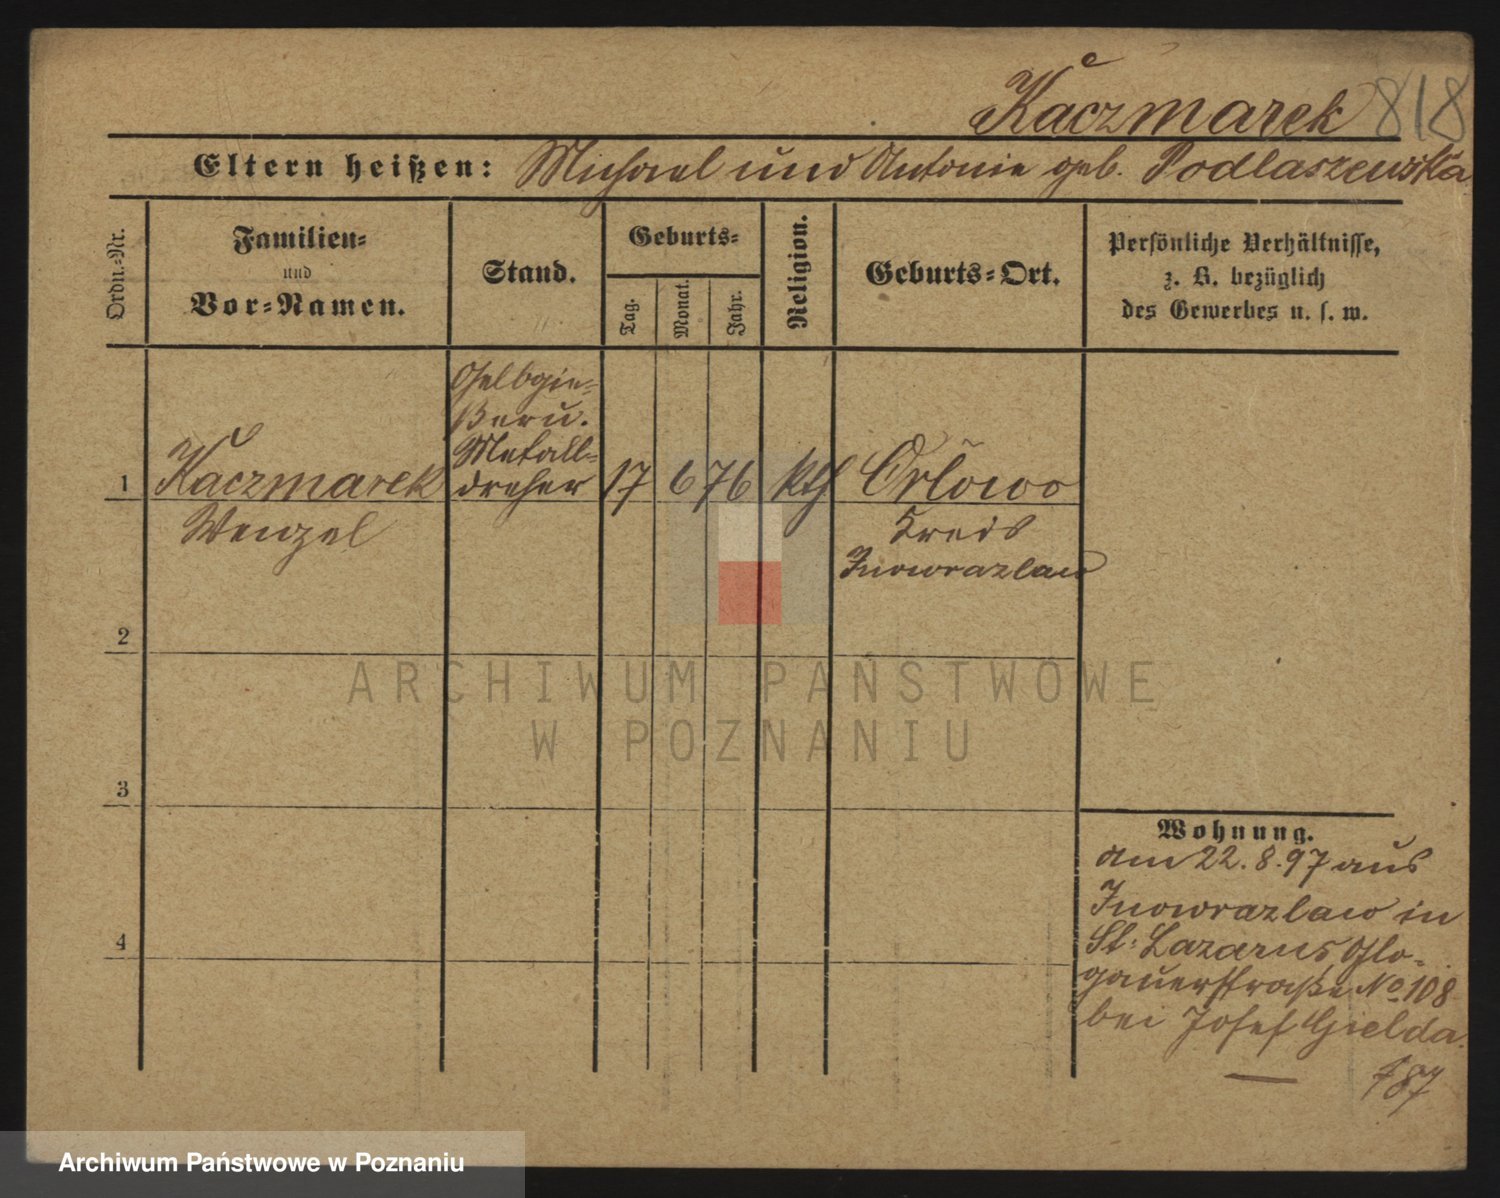 Kaczmarek 818
Eltern heißen: Michael und Antonie geb. Podlaszewska
Ordn.-Nr.
Familien-
und
Vor-Namen.
Stand.
Geburts-
Tag.
Monat.
Jahr.
Religion.
Geburts-Ort.
Persönliche Verhältnisse,
z. B. bezüglich
des Gewerbes u. s. w.
Gelbgie-
ßer u.
Metall-
1 Kaczmarek dreher 17 6 76 kth Orlowo
Wenzel Kreis
Inowrazlaw
2
ARCHIWUM PAŃSTWOWE
W POZNANIU
3
Wohnung.
am 22.8.97 aus
Inowrazlaw in
4
St. Lazarus Glo-
gauerstraße No 108
bei Josef Gielda.
Archiwum Państwowe w Poznaniu